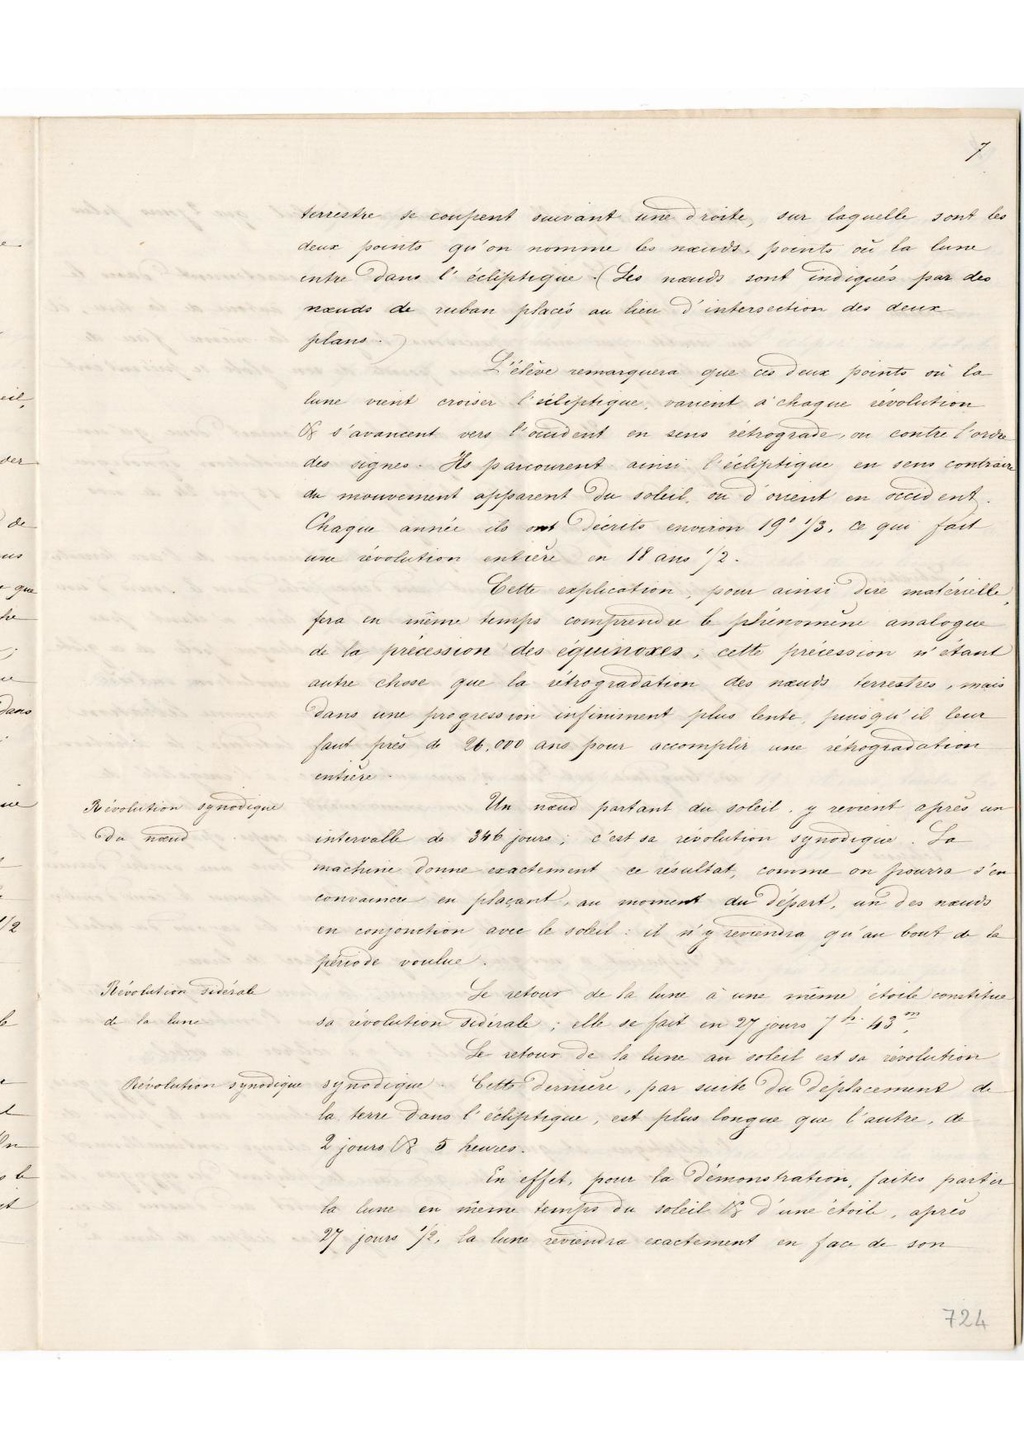 7
terrestre se coupent suivant une droite, sur laquelle sont les
deux points qu'on nomme les nœuds, points où la lune
entre dans l'écliptique. (Les nœuds sont indiqués par des
nœuds de ruban placés au lieu d'intersection des deux
plans.)
L'élève remarquera que ces deux points où la
lune vient croiser l'écliptique, varient à chaque révolution
& s'avancent vers l'occident en sens rétrograde, ou contre l'ordre
des signes. Ils parcourent ainsi l'écliptique en sens contraire
du mouvement apparent du soleil, ou d'orient en occident.
Chaque année ils ont décrits environ 19° 1/3, ce qui fait
une révolution entière en 18 ans 1/2.
Cette explication, pour ainsi dire matérielle,
fera en même temps comprendre le phénomène analogue
de la précession des équinoxes; cette précession n'étant
autre chose que la rétrogradation des nœuds terrestres, mais
dans une progression infiniment plus lente, puisqu'il leur
faut près de 26,000 ans pour accomplir une rétrogradation
entière.
Révolution synodique
du nœud
Un nœud partant du soleil, y revient après un
intervalle de 346 jours; c'est sa révolution synodique. La
machine donne exactement ce résultat, comme on pourra s'en
convaincre en plaçant, au moment du départ, un des nœuds
en conjonction avec le soleil: il n'y reviendra qu'au bout de la
période voulue.
Révolution sidérale
de la lune
Le retour de la lune à une même étoile constitue
sa révolution sidérale; elle se fait en 27 jours 7 h. 43 m.
Le retour de la lune au soleil est sa révolution
Révolution synodique
synodique. Cette dernière, par suite du déplacement de
la terre dans l'écliptique, est plus longue que l'autre, de
2 jours & 5 heures.
En effet, pour la démonstration, faites partir
la lune en même temps du soleil & d'une étoile, après
27 jours 1/2, la lune reviendra exactement en face de son
724